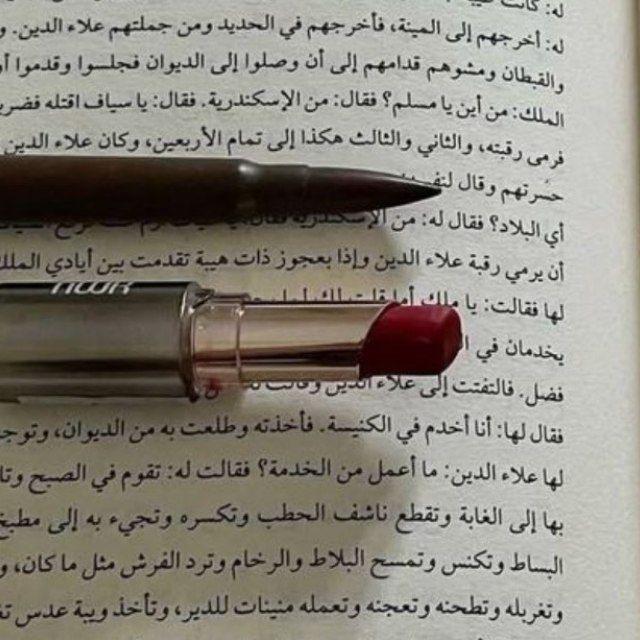 له: كانت
له: أخرجهم إلى المينة، فأخرجهم في الحديد ومن جملتهم علاء الدين.
والقبطان ومشوهم قدامهم إلى أن وصلوا إلى الديوان فجلسوا وقدموا
الملك: من أين يا مسلم؟ فقال: من الإسكندرية. فقال: يا سياف اقتله فضرب
فرمى رقبته، والثاني والثالث هكذا إلى تمام الأربعين، وكان علاء الدين
حسرتهم وقال
أي البلاد؟ فقال له: من الإسكندرية فقال:
أن يرمي رقبة علاء الدين وإذا بعجوز ذات هيبة تقدمت بين أيادي الملك
لها فقالت: يا ملك
noor
يخدمان في
فضل. فالتفتت إلى علاء الدين وقالت
فقال لها: أنا أخدم في الكنيسة. فأخذته وطلعت به من الديوان،
لها علاء الدين: ما أعمل من الخدمة؟ فقالت له: تقوم في الصبح
بها إلى الغابة وتقطع ناشف الحطب وتكسره وتجيء به إلى مطبخ
البساط وتكنس وتمسح البلاط والرخام وترد الفرش مثل ما كان،
وتغربله وتطحنه وتعجنه وتعمله منينات للدير، وتأخذ ويبة عدس